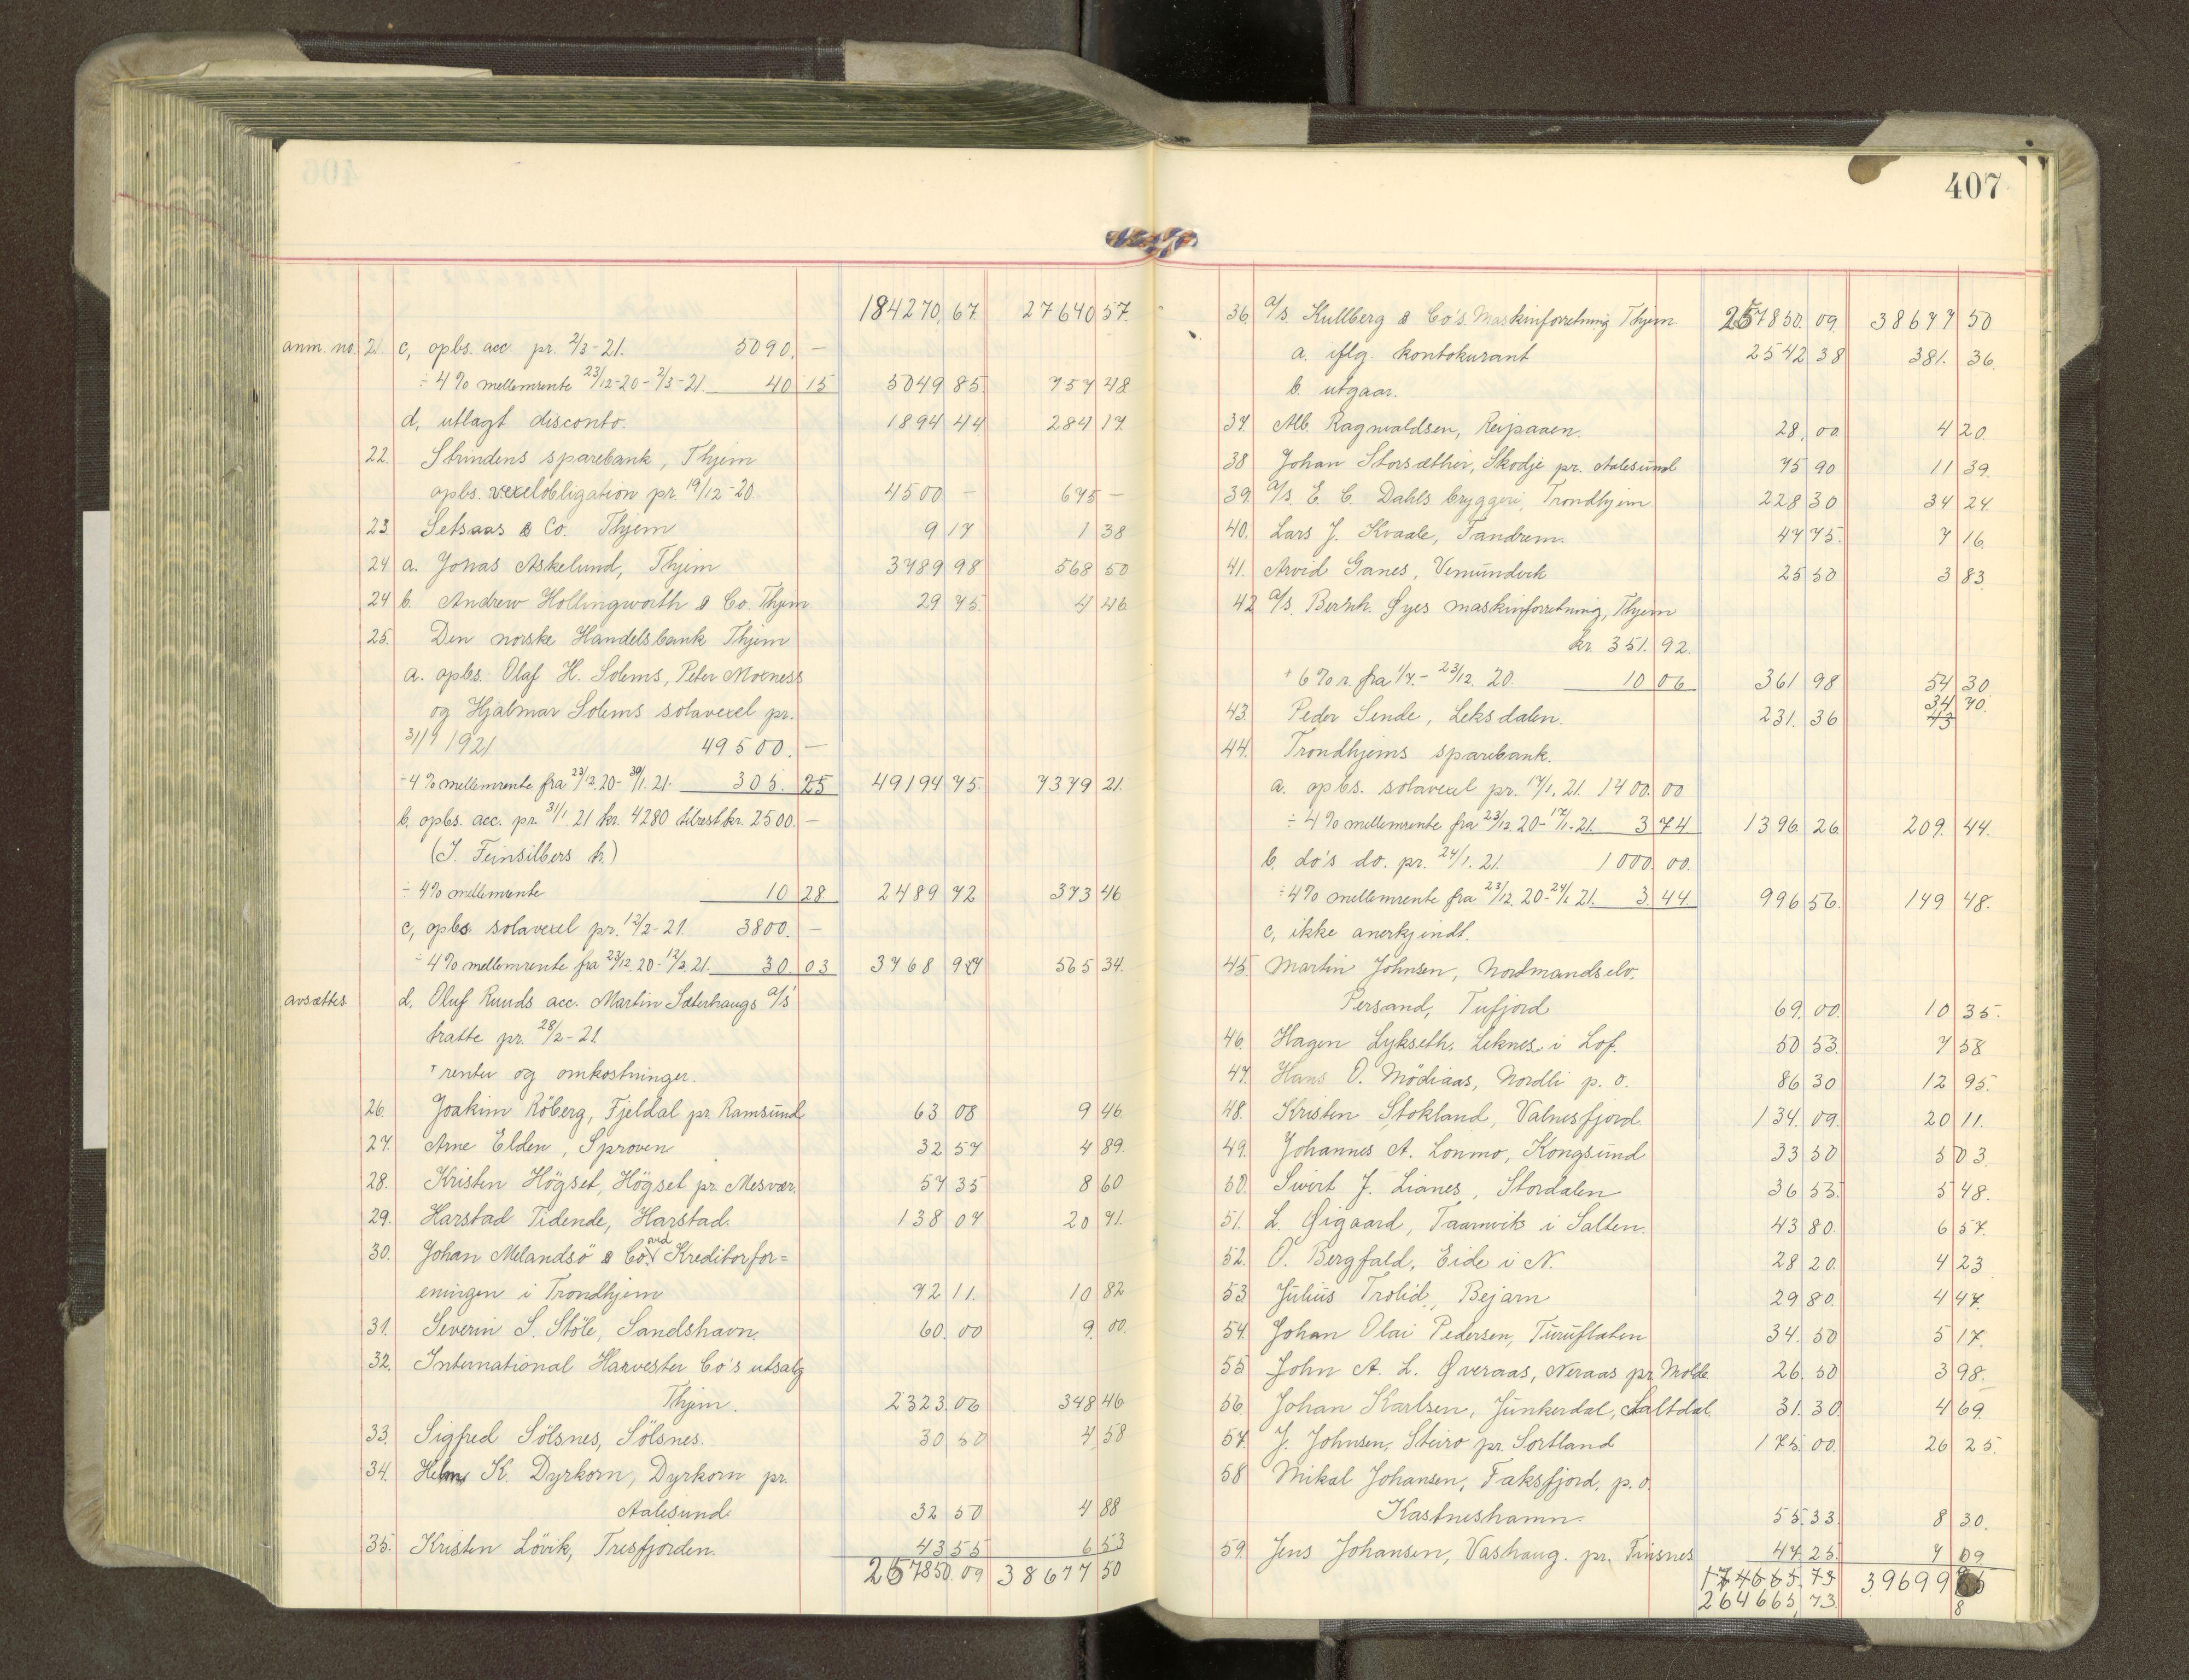 184270,67. 27640 57.
anm. no. 21. c, opbs. acc. pr. 2/3-21. 5090. —
÷ 4% mellemrente 23/12-20 - 2/3-21. 40 15 5049 85. 757 48
d, utlagt disconto. 1894 44 284 17.
22. Strindens sparebank, Thjem
opbs. vexelobligation pr. 19/12-20 4500 — 675 —
23. Setsaas & Co. Thjem 9 17 1 38
24 a. Jonas Askelund, Thjem 3789 98 568 50
24 b. Andrew Hollingworth & Co. Thjem 29 75. 4 46
25. Den norske Handelsbank Thjem
a. opbs. Olaf H. Solems, Peter Moxness
og Hjalmar Solems solavexel pr.
31/1 1921 49500. —
- 4% mellemrente fra 23/12.20 - 30/1.21. 305. 25 49194 75. 7379 21.
b, opbs. acc. pr. 31/1 21 kr. 4280 tilrest kr. 2500. —
(I. Feinsilbers tr.)
÷ 4% mellemrente 10 28 2489 72 373 46
c, opbs solavexel pr. 12/2-21. 3800. —
÷ 4% mellemrente fra 23/12.20 - 12/3.21. 30. 03 3768 97 565 34.
avsættes d. Oluf Ruuds acc. Martin Sæterhaugs a/s'
tratte pr. 28/2-21
+ renter og omkostninger.
26. Joakim Röberg, Fjeldal pr. Ramsund 63 08 9 46
27. Arne Elden, Sproven 32 57 4 89.
28. Kristen Högset, Högset pr. Mesvær. 57 35 8 60
29. Harstad Tidende, Harstad. 138 07 20 71.
30. Johan Melandsö & Co. ved Kreditorfor=
eningen i Trondhjem 72 11. 10 82
31. Severin S. Stöle, Sandshavn. 60. 00 9. 00.
32. International Harvester Co's utsalg
Thjem. 2323. 06 348 46
33. Sigfred Sölsnes, Sölsnes. 30 50 4 58
34. K. Dyrkorn, Dyrkorn pr.
Aalesund. 32 50 4 88
35. Kristen Lövik, Tresfjorden. 43 55 6 53
257850. 09 38677 50
407
36. a/s. Kullberg & Co's. Maskinforretning Thjem 257850. 09. 38677 50
a. iflg. kontokurant 2542 38 381. 36.
b. utgaar.
37. Alb. Ragnvaldsen, Reipaaen. 28, 00. 4 20.
38 Johan Storsæther, Skodje pr. Aalesund 75 90 11 39.
39. a/s. E. C. Dahls bryggeri, Trondhjem 228 30 34 24.
40. Lars J. Kvaale, Tandrem. 47 75. 7 16.
41. Arvid Ganes, Vemundvik 25 50 3 83.
42 a/s. Bernh. Øyes maskinforretning, Thjem
kr. 351. 92.
+ 6% r. fra 1/7. - 23/12. 20. 10 06 361 98 54 30.
43. Peder Sende, Leksdalen. 231. 36 34 70.
43
44. Trondhjems sparebank.
a. opbs. solavexel pr. 17/1. 21. 1400. 00
÷ 4% mellemrente fra 23/12. 20 - 17/1-21. 3 74 1396. 26 209. 44.
b, do's do. pr. 24/1. 21. 1000. 00.
÷ 4% mellemrente fra 23/12. 20 - 24/1 21. 3 44 996 56. 149 48.
c, ikke anerkjendt.
45. Martin Johnsen, Nordmandselv.
Persand, Tufjord 69. 00. 10 35.
46. Hagen Lykseth, Leknes i Lof. 50 53. 7 58
47. Hans O. Mödiaas, Nordli p. o. 86 30 12 95.
48. Kristen Stokland, Valnesfjord 134. 09. 20 11.
49. Johannes A. Lonmo, Kongsund 33 50 5 03.
50. Sivert J. Lianes, Stordalen 36 53. 5 48.
51. L. Øigaard, Taarnvik i Salten. 43 80. 6 57.
52. O. Bergfald, Eide i N. 28 20. 4 23
53 Julius Trolid., Bejarn 29 80. 4 47.
54. Johan Olai Pedersen, Turuflaten 34. 50 5 17.
55 John A. L. Øveraas, Neraas pr. Molde. 26. 50 3 98.
56. Johan Karlsen, Junkerdal, Saltdal. 31. 30. 4 69.
57. J. Johnsen, Steiro pr. Sortland 175. 00. 26 25.
58 Mikal Johansen, Faksfjord, p. o.
Kastneshamn. 55. 33. 8 30.
59. Jens Johansen, Vashaug. pr. Finsnes 47 25. 7 09.
174665. 73 39699
264665, 73. 8